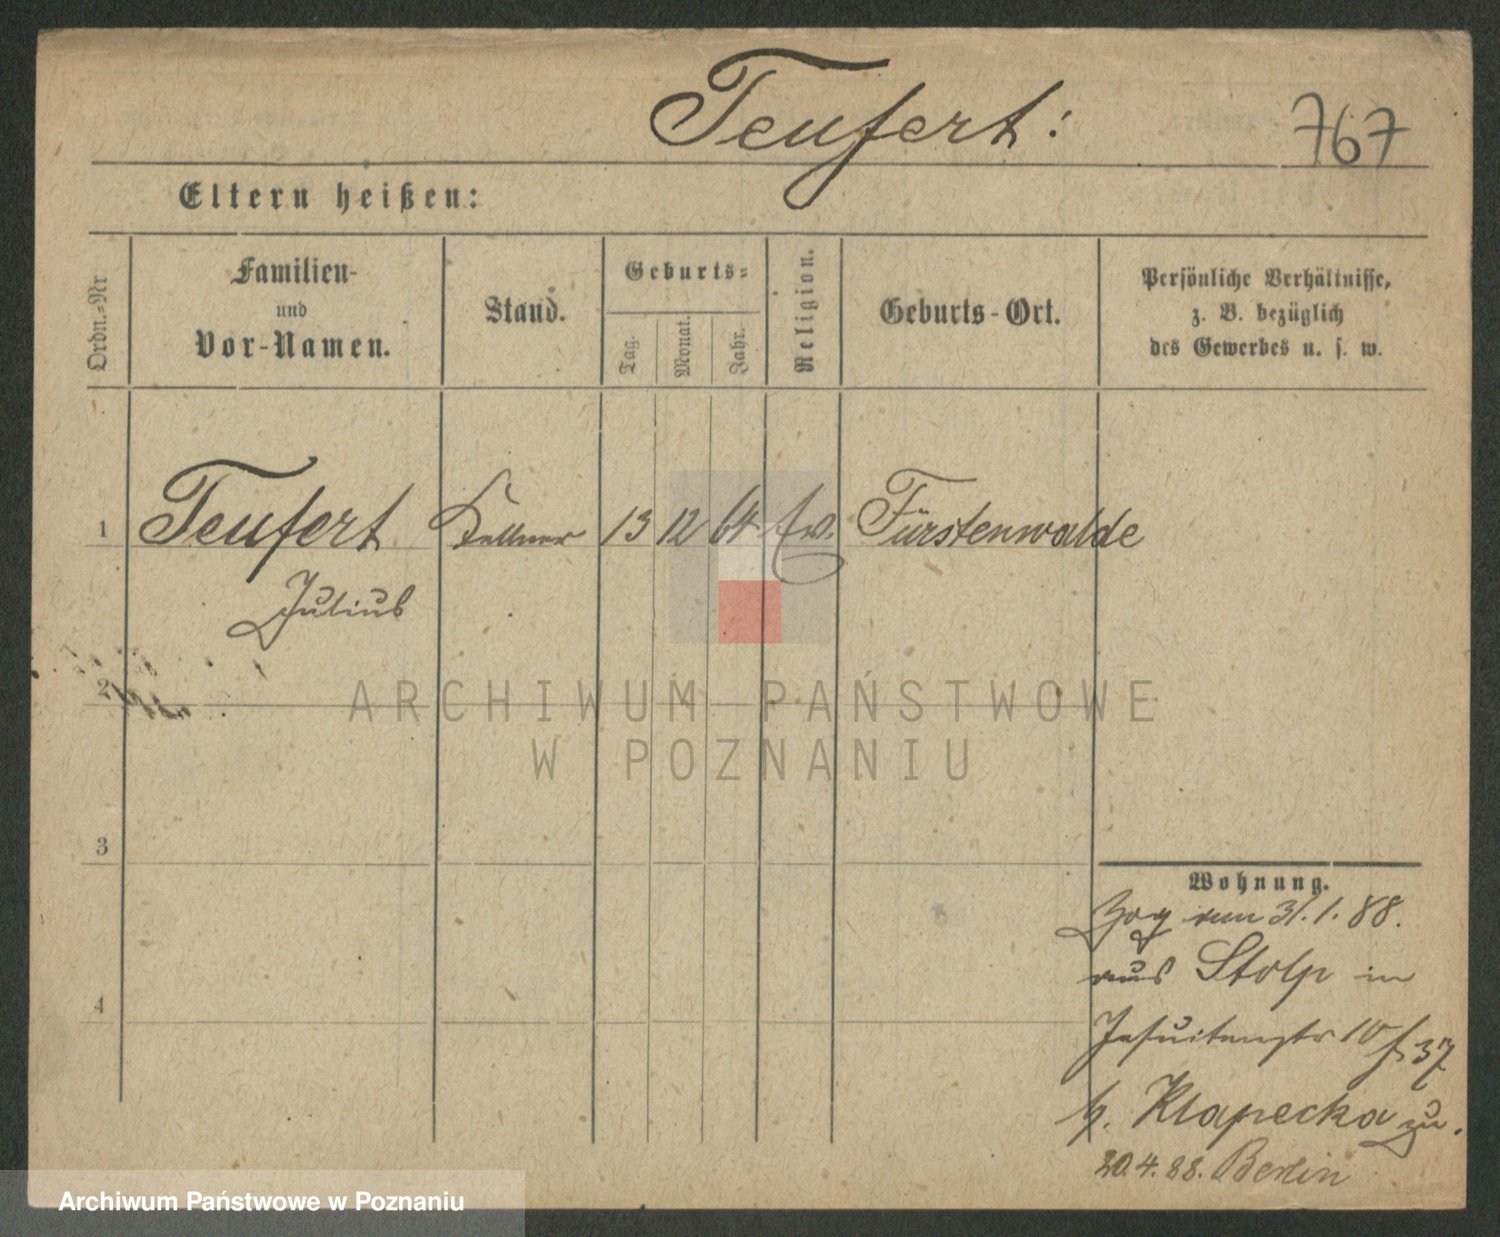 Teufert:
767
Eltern heißen:
Ordn.-Nr
Familien-
und
Vor-Namen.
Stand.
Geburts-
Tag.
Monat.
Jahr.
Religion.
Geburts-Ort.
Persönliche Verhältnisse,
z. B. bezüglich
des Gewerbes u. s. w.
1 Teufert Kellner 13 12 64 Ev. Fürstenwalde
Julius
2
ARCHIWUM PAŃSTWOWE
W POZNANIU
3
Wohnung.
Zog am 31.1.88.
aus Stolp in
4
Jesuitenstr 10 37
b. Klapecka zu.
20.4.88. Berlin
Archiwum Państwowe w Poznaniu